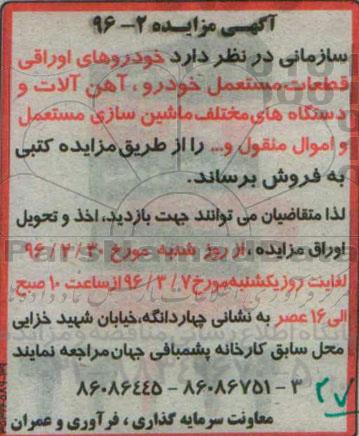 آگهی مزایده ۲- ۹۶
سازمانی در نظر دارد خودروهای اوراقی
قطعات مستعمل خودرو ، آهن آلات و
دستگاه های مختلف ماشین سازی مستعمل
و اموال منقول و... را از طریق مزایده کتبی
به فروش برساند.
لذا متقاضیان می توانند جهت بازدید، اخذ و تحویل
اوراق مزایده ، از روز شنبه مورخ ۹۶ / ۲ / ۳۰
لغایت روز یکشنبه مورخ ۷ / ۳ / ۹۶ از ساعت ۱۰ صبح
الی ۱۶ عصر به نشانی چهاردانگه، خیابان شهید خزایی
محل سابق کارخانه پشمبافی جهان مراجعه نمایند
۸۶۰۸۶۴۴۵ - ۸۶۰۸۶۷۵۱ - ۳
معاونت سرمایه گذاری ، فرآوری و عمران
۲۷